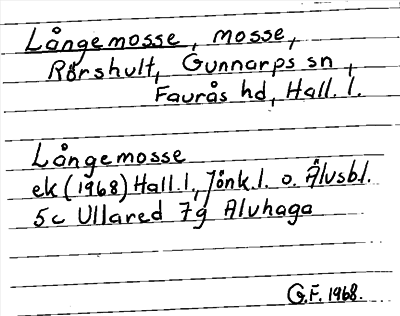 Långemosse, mosse,
Rörshult, Gunnarps sn,
Faurås hd, Hall. l.
Långemosse
ek (1968) Hall. l., Jönk. l. o. Älvsb. l.
5c Ullared 7g Alvhaga
G.F. 1968.